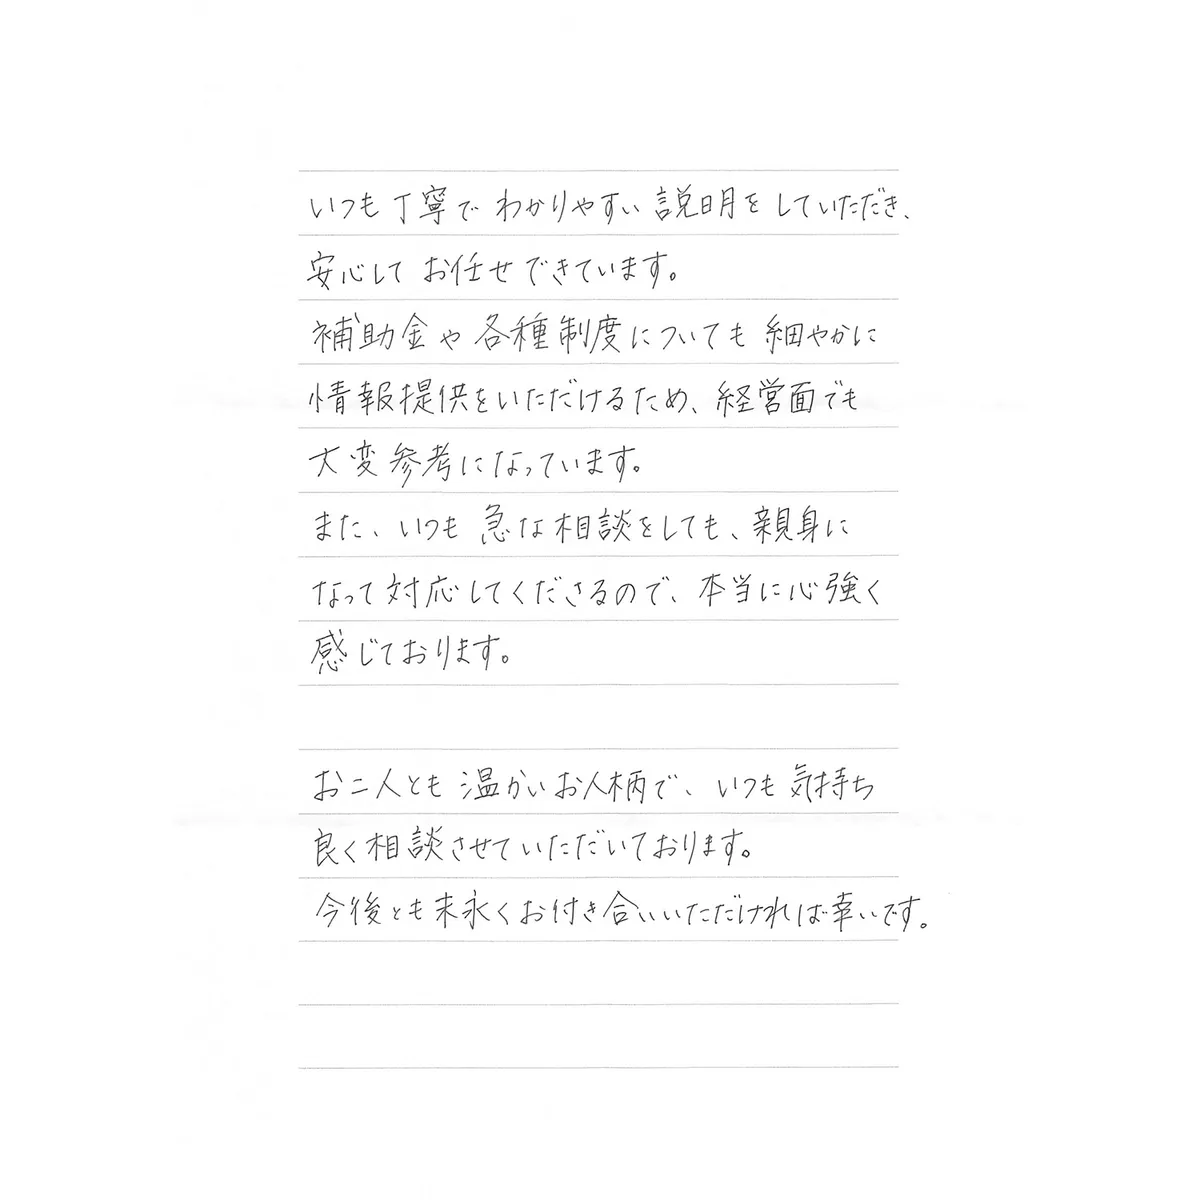 いつも丁寧でわかりやすい説明をしていただき、
安心してお任せできています。
補助金や各種制度についても細やかに
情報提供をいただけるため、経営面でも
大変参考になっています。
また、いつも急な相談をしても、親身に
なって対応してくださるので、本当に心強く
感じております。
お二人とも温かいお人柄で、いつも気持ち
良く相談させていただいております。
今後とも末永くお付き合いいただければ幸いです。